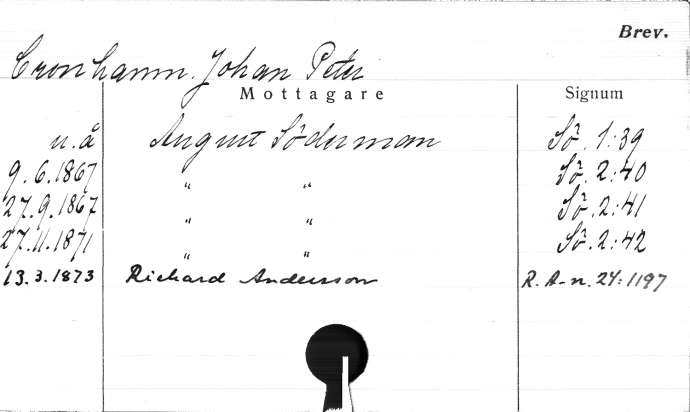 Brev.
Cronhamn. Johan Peter
Mottagare Signum
u.å August Söderman Sö. 1:39
9.6.1867 " " Sö. 2:40
27.9.1867 " " Sö. 2:41
27.11.1871 " " Sö. 2:42
13.3.1873 Richard Andersson R. A-n. 24:1197